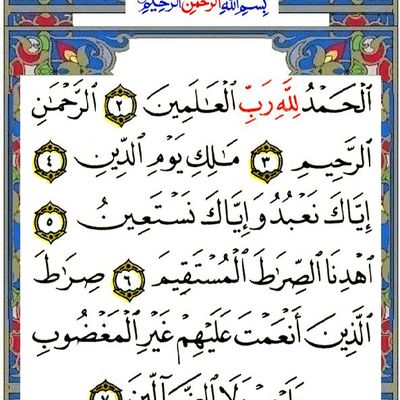 بِسْمِ ٱللَّهِ ٱلرَّحْمَٰنِ ٱلرَّحِيمِ
ٱلْحَمْدُ لِلَّهِ رَبِّ ٱلْعَٰلَمِينَ ٢ ٱلرَّحْمَٰنِ
ٱلرَّحِيمِ ٣ مَٰلِكِ يَوْمِ ٱلدِّينِ ٤
إِيَّاكَ نَعْبُدُ وَإِيَّاكَ نَسْتَعِينُ ٥
ٱهْدِنَا ٱلصِّرَٰطَ ٱلْمُسْتَقِيمَ ٦ صِرَٰطَ
ٱلَّذِينَ أَنْعَمْتَ عَلَيْهِمْ غَيْرِ ٱلْمَغْضُوبِ
عَلَيْهِمْ وَلَا ٱلضَّآلِّينَ ٧